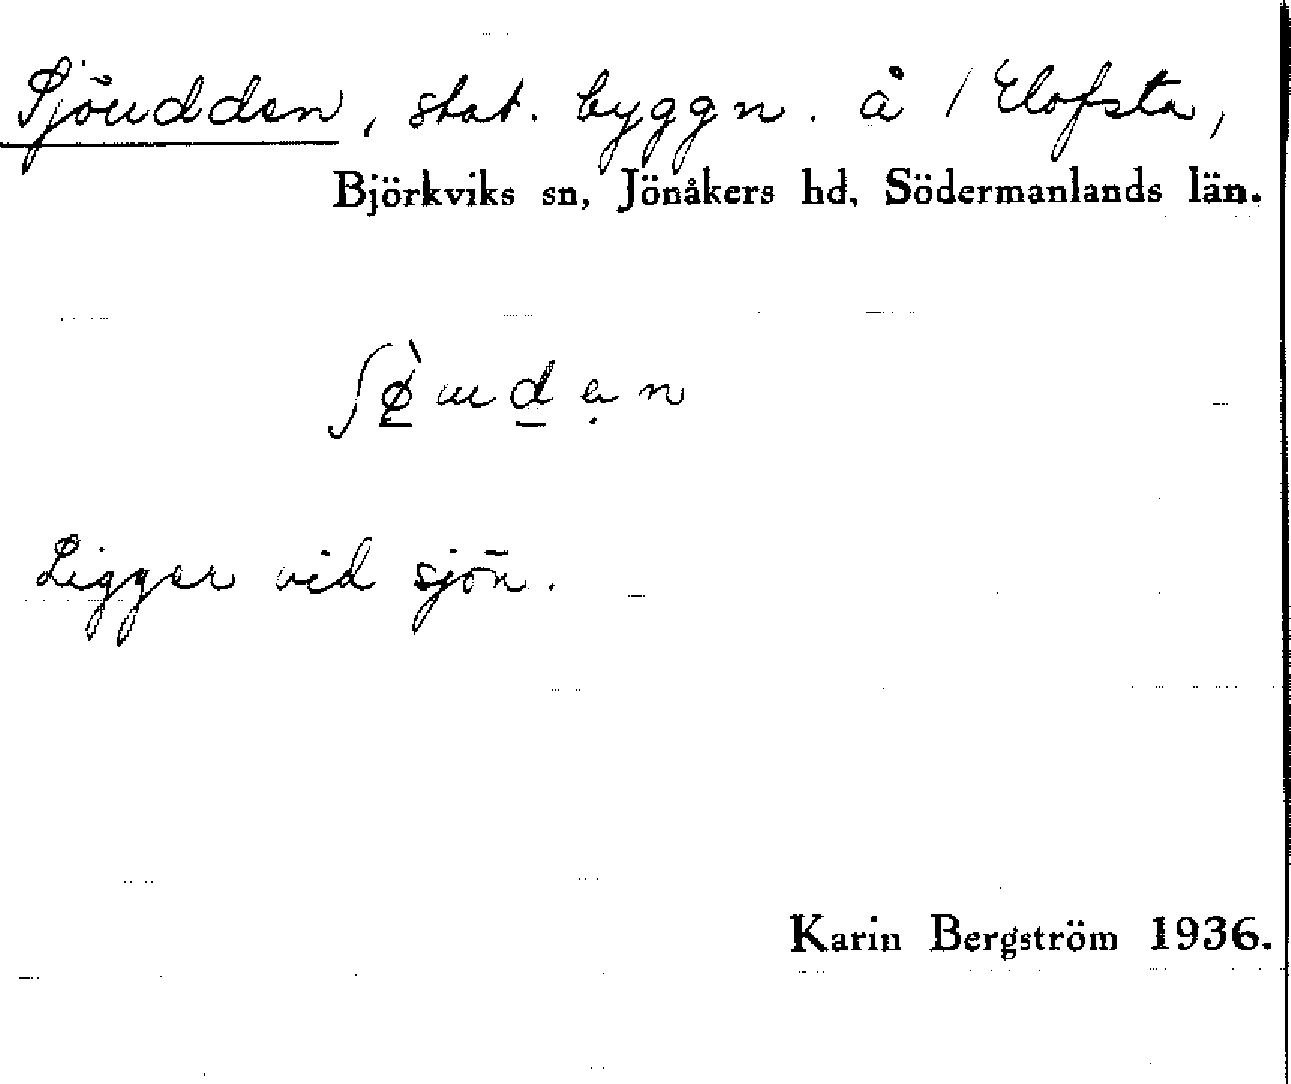 Sjöudden, stat. byggn. å 1 Elofsta,
Björkviks sn, Jönåkers hd, Södermanlands län.
ʃø̠̀ud̠ẹn
Ligger vid sjön.
Karin Bergström 1936.